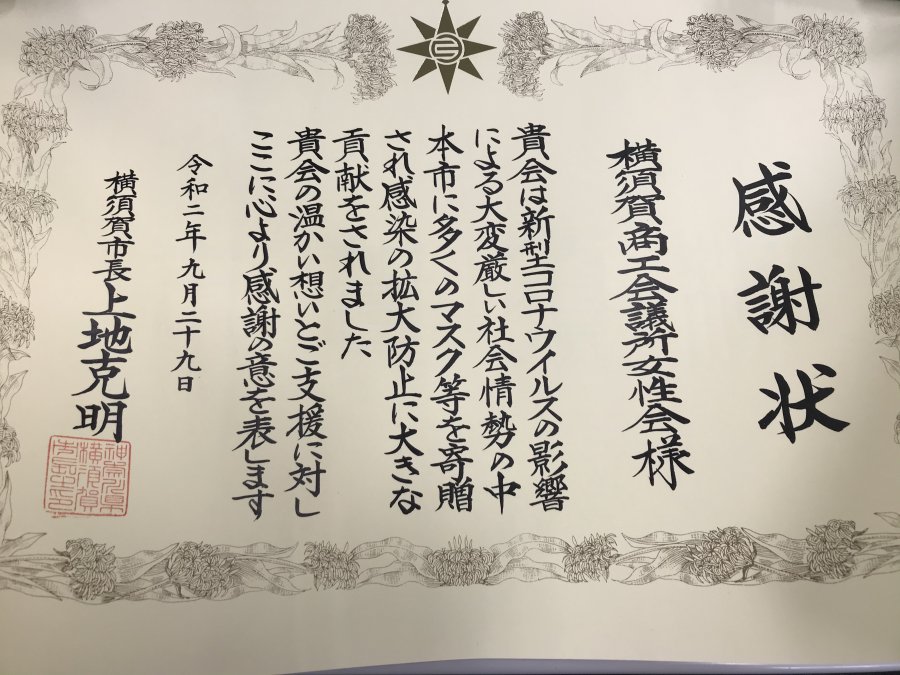 感謝状
横須賀商工会議所女性会様
貴会は新型コロナウイルスの影響
による大変厳しい社会情勢の中
本市に多くのマスク等を寄贈
され感染の拡大防止に大きな
貢献をされました
貴会の温かい想いとご支援に対し
ここに心より感謝の意を表します
令和二年九月二十九日
横須賀市長上地克明